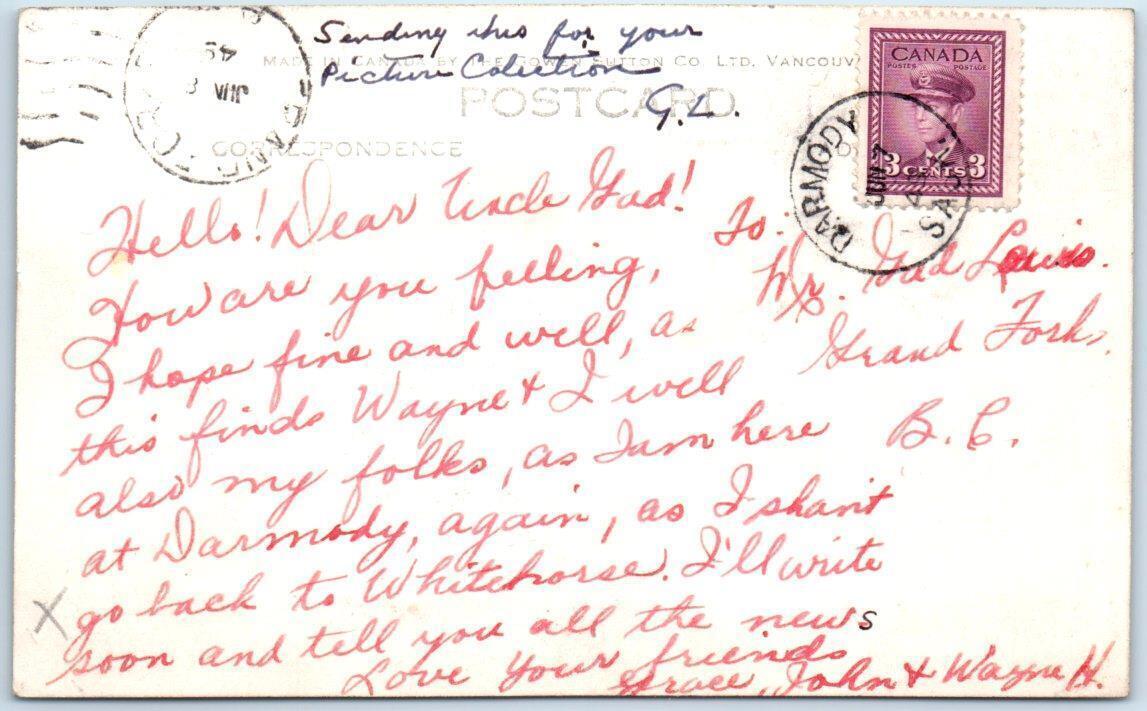 Sending this for your
MADE IN CANADA BY THE GOWEN SUTTON CO. LTD. VANCOUV
Picture Colection
POSTCARD
G.L.
CORRESPONDENCE
CANADA
POSTES POSTAGE
3 CENTS 3
DARMODY
JUN 7
SASK
Hello! Dear Uncle Gad!
How are you felling,
I hope fine and well, as
this finds Wayne & I well
also my folks, as I am here
at Darmody, again, as I shant
go back to Whitehorse. I'll write
soon and tell you all the news
Love Your friends
Grace, John & Wayne H.
To.
Mr. Gad Lewis.
Grand Forks,
B.C.
X